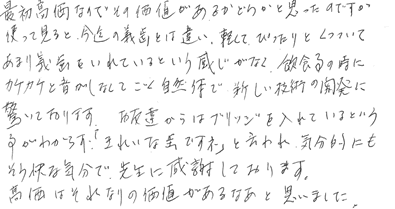 最初高価なのでその価値があるかどうかと思ったのですが
使って見ると、今迄の義歯とは違い、軽くて、ぴったりとくっついて
あまり義歯をいれているという感じがなく、飲食の時に
カケカケと音がしなくてごく自然体で、新しい技術の開発に
驚いております。 友達からはブリッジを入れているという
事がわからず、「きれいな歯ですネ」と言われ、気分的にも
そう快な気分で、先生に感謝しております。
高価はそれなりの価値があるなあと思いました。